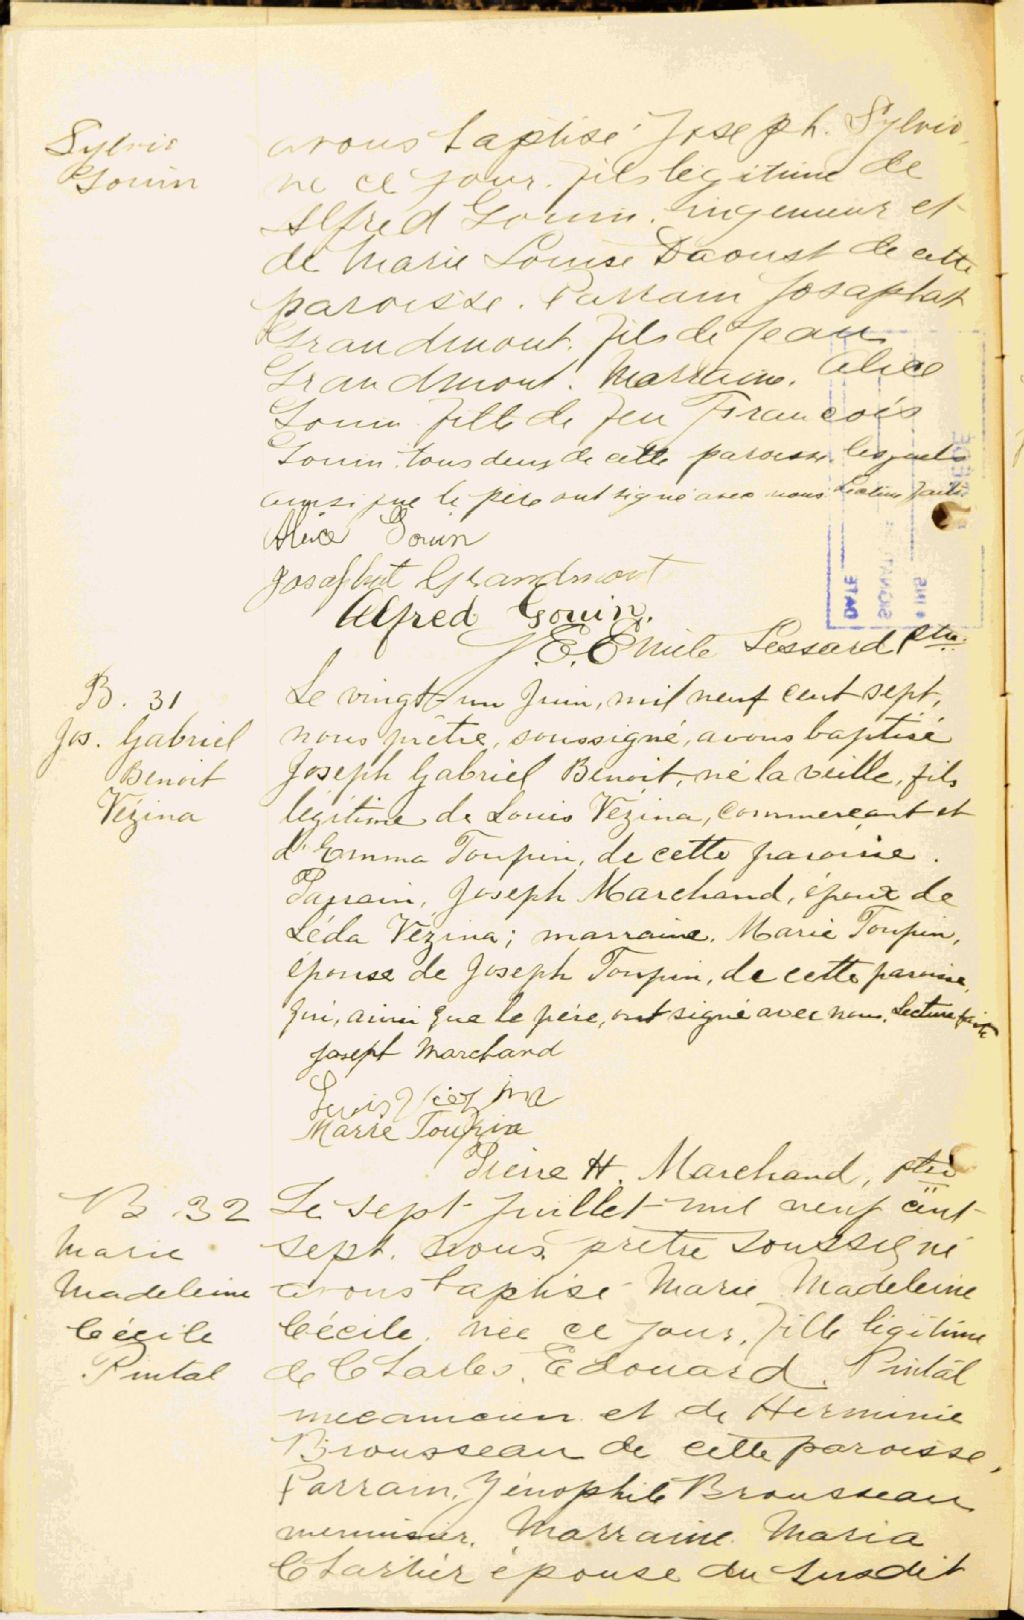 Sylvio
Gouin
avons baptisé Joseph. Sylvio
né ce jour. fils légitime de
Alfred Gouin. ingenieur et
de Marie Louise Daoust de cette
paroisse. Parrain Josaphat
Grandmont. fils de Jean
Grandmont. Marraine. Alice
Gouin fille de feu François
Gouin. tous deux de cette paroisse lesquels
ainsi que le père ont signé avec nous. Lecture faite
Alice Gouin
Josaphat Grandmont
Alfred Gouin.
J. E. Emile Lessard ptre.
DATE
B. 31
Jos. Gabriel
Benoit
Vézina
Le vingt-un Juin, mil neuf cent sept,
nous prêtre, soussigné, avons baptisé
Joseph Gabriel Benoit, né la veille, fils
légitime de Louis Vézina, commerçant et
d'Emma Toupin, de cette paroisse.
Parrain, Joseph Marchand, époux de
Léda Vézina; marraine. Marie Toupin,
épouse de Joseph Toupin, de cette paroisse,
qui, ainsi que le père, ont signé avec nous. Lecture faite
Joseph Marchand
Louis Vézina
Marie Toupin
Pierre H. Marchand, ptre
B. 32
Marie
Madeleine
Cécile
Pintal
Le sept Juillet mil neuf cent
sept. nous. prêtre soussigné
avons baptisé Marie Madeleine
Cécile. née ce jour. fille légitime
de Charles. Edouard. Pintal
mecanicien et de Herminie
Brousseau de cette paroisse,
Parrain. Zénophile Brousseau
menuisier. Marraine Maria
Chartier épouse du susdit